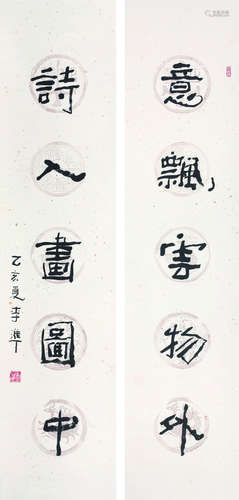 意飘雲物外
詩入畫圖中
乙亥夏李